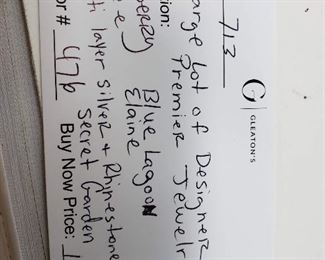 713
GLEATON'S
Large Lot of Designer
Premier Jewelr
ion:
Blue Lagoon
Elaine
layer silver + Rhinestone
Secret Garden
or # 476
Buy Now Price: